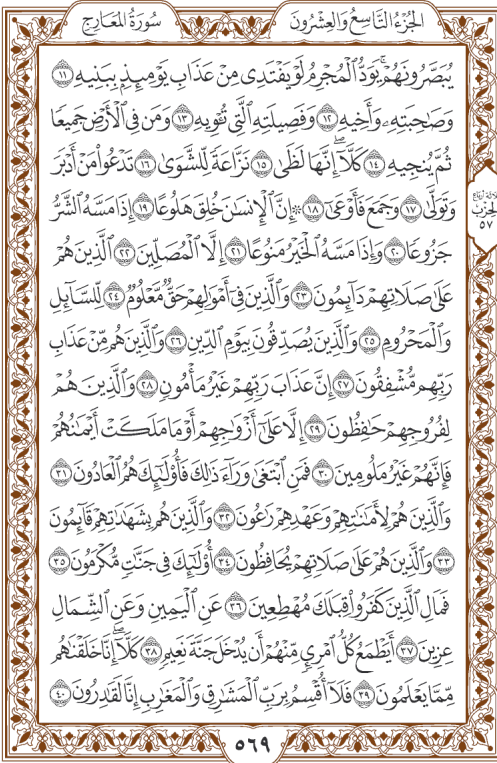 الجُزْءُ التَّاسِعُ وَالعِشْرُونَ سُورَةُ المَعَارِج
يُبَصَّرُونَهُمْ ۚ يَوَدُّ ٱلْمُجْرِمُ لَوْ يَفْتَدِى مِنْ عَذَابِ يَوْمِئِذٍۭ بِبَنِيهِ ١١
وَصَٰحِبَتِهِۦ وَأَخِيهِ ١٢ وَفَصِيلَتِهِ ٱلَّتِى تُـْٔوِيهِ ١٣ وَمَن فِى ٱلْأَرْضِ جَمِيعًا
ثُمَّ يُنجِيهِ ١٤ كَلَّآ ۖ إِنَّهَا لَظَىٰ ١٥ نَزَّاعَةً لِّلشَّوَىٰ ١٦ تَدْعُوا۟ مَنْ أَدْبَرَ
وَتَوَلَّىٰ ١٧ وَجَمَعَ فَأَوْعَىٰٓ ١٨ ۞ إِنَّ ٱلْإِنسَٰنَ خُلِقَ هَلُوعًا ١٩ إِذَا مَسَّهُ ٱلشَّرُّ
ثلاثة أرباع
الحزب
٥٧
جَزُوعًا ٢٠ وَإِذَا مَسَّهُ ٱلْخَيْرُ مَنُوعًا ٢١ إِلَّا ٱلْمُصَلِّينَ ٢٢ ٱلَّذِينَ هُمْ
عَلَىٰ صَلَاتِهِمْ دَآئِمُونَ ٢٣ وَٱلَّذِينَ فِىٓ أَمْوَٰلِهِمْ حَقٌّ مَّعْلُومٌ ٢٤ لِّلسَّآئِلِ
وَٱلْمَحْرُومِ ٢٥ وَٱلَّذِينَ يُصَدِّقُونَ بِيَوْمِ ٱلدِّينِ ٢٦ وَٱلَّذِينَ هُم مِّنْ عَذَابِ
رَبِّهِم مُّشْفِقُونَ ٢٧ إِنَّ عَذَابَ رَبِّهِمْ غَيْرُ مَأْمُونٍ ٢٨ وَٱلَّذِينَ هُمْ
لِفُرُوجِهِمْ حَٰفِظُونَ ٢٩ إِلَّا عَلَىٰٓ أَزْوَٰجِهِمْ أَوْ مَا مَلَكَتْ أَيْمَٰنُهُمْ
فَإِنَّهُمْ غَيْرُ مَلُومِينَ ٣٠ فَمَنِ ٱبْتَغَىٰ وَرَآءَ ذَٰلِكَ فَأُو۟لَٰٓئِكَ هُمُ ٱلْعَادُونَ ٣١
وَٱلَّذِينَ هُمْ لِأَمَٰنَٰتِهِمْ وَعَهْدِهِمْ رَٰعُونَ ٣٢ وَٱلَّذِينَ هُم بِشَهَٰدَٰتِهِمْ قَآئِمُونَ
٣٣ وَٱلَّذِينَ هُمْ عَلَىٰ صَلَاتِهِمْ يُحَافِظُونَ ٣٤ أُو۟لَٰٓئِكَ فِى جَنَّٰتٍ مُّكْرَمُونَ ٣٥
فَمَالِ ٱلَّذِينَ كَفَرُوا۟ قِبَلَكَ مُهْطِعِينَ ٣٦ عَنِ ٱلْيَمِينِ وَعَنِ ٱلشِّمَالِ
عِزِينَ ٣٧ أَيَطْمَعُ كُلُّ ٱمْرِئٍ مِّنْهُمْ أَن يُدْخَلَ جَنَّةَ نَعِيمٍ ٣٨ كَلَّآ ۖ إِنَّا خَلَقْنَٰهُم
مِّمَّا يَعْلَمُونَ ٣٩ فَلَآ أُقْسِمُ بِرَبِّ ٱلْمَشَٰرِقِ وَٱلْمَغَٰرِبِ إِنَّا لَقَٰدِرُونَ ٤٠
٥٦٩